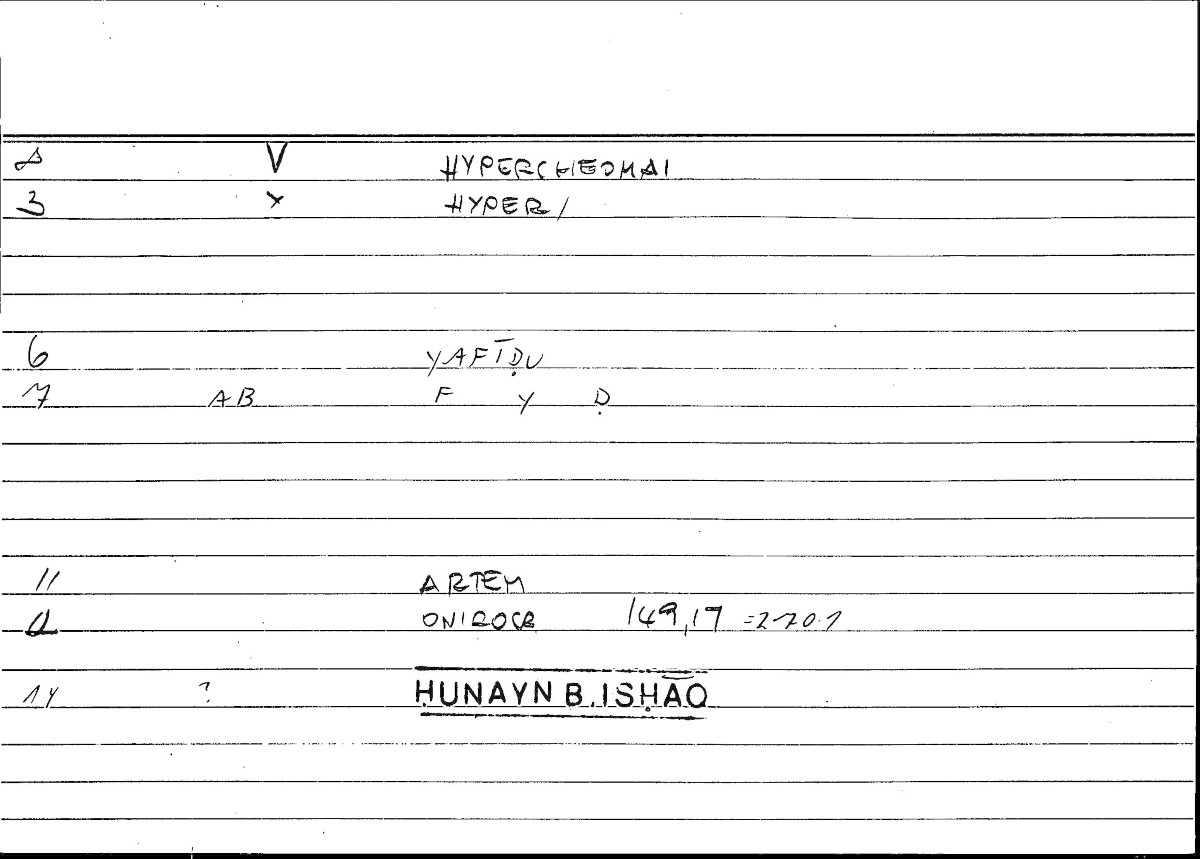 V HYPERCHEOMAI
3 Y HYPER/
6 YAFĪḌU
7 AB F Y Ḍ
11 ARTEM
ONIROCR 149,17 =2-20.1
14 ? ḤUNAYN B. ISḤĀQ